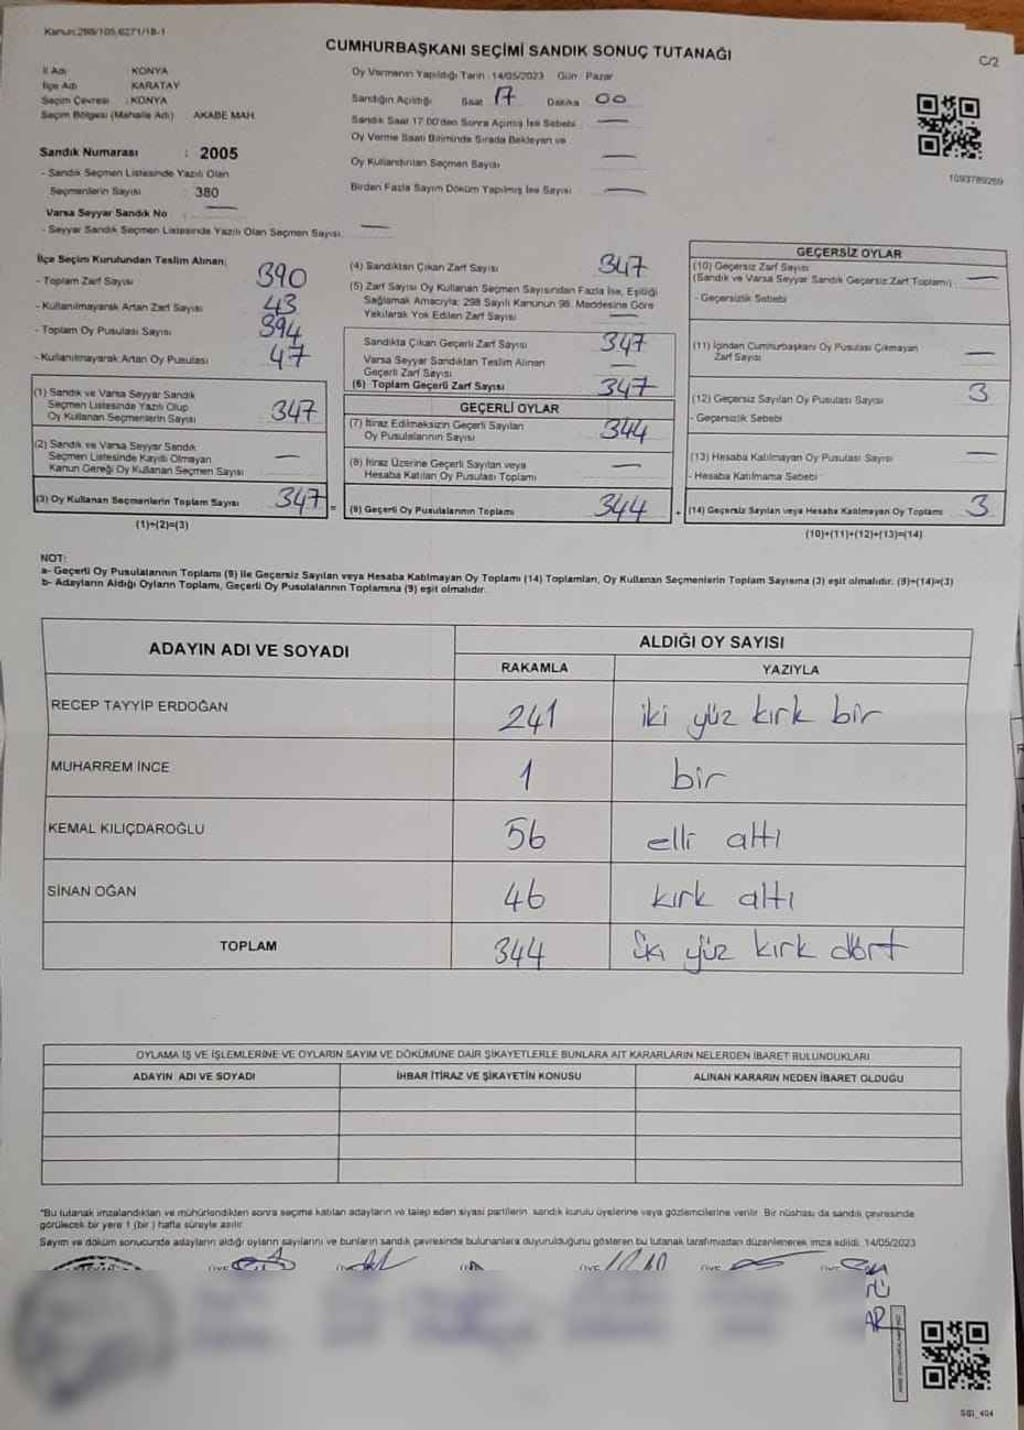 Kanun:298/105,6271/18-1
CUMHURBAŞKANI SEÇİMİ SANDIK SONUÇ TUTANAĞI
C/2
İl Adı : KONYA
İlçe Adı : KARATAY
Seçim Çevresi : KONYA
Seçim Bölgesi (Mahalle Adı) AKABE MAH.
Sandık Numarası : 2005
- Sandık Seçmen Listesinde Yazılı Olan
Seçmenlerin Sayısı 380
Varsa Seyyar Sandık No : —
- Seyyar Sandık Seçmen Listesinde Yazılı Olan Seçmen Sayısı: —
Oy Vermenin Yapıldığı Tarih : 14/05/2023 Gün : Pazar
Sandığın Açıldığı Saat 17 Dakika 00
Sandık Saat 17:00'den Sonra Açılmış İse Sebebi : —
Oy Verme Saati Bitiminde Sırada Bekleyen ve
Oy Kullandırılan Seçmen Sayısı —
Birden Fazla Sayım Döküm Yapılmış İse Sayısı —
1093789269
İlçe Seçim Kurulundan Teslim Alınan;
- Toplam Zarf Sayısı 390
- Kullanılmayarak Artan Zarf Sayısı 43
- Toplam Oy Pusulası Sayısı 394
- Kullanılmayarak Artan Oy Pusulası 47
(1) Sandık ve Varsa Seyyar Sandık
Seçmen Listesinde Yazılı Olup
Oy Kullanan Seçmenlerin Sayısı 347
(2) Sandık ve Varsa Seyyar Sandık
Seçmen Listesinde Kayıtlı Olmayan
Kanun Gereği Oy Kullanan Seçmen Sayısı —
(3) Oy Kullanan Seçmenlerin Toplam Sayısı 347 =
(1)+(2)=(3)
(4) Sandıktan Çıkan Zarf Sayısı 347
(5) Zarf Sayısı Oy Kullanan Seçmen Sayısından Fazla İse, Eşitliği
Sağlamak Amacıyla; 298 Sayılı Kanunun 98. Maddesine Göre
Yakılarak Yok Edilen Zarf Sayısı —
Sandıkta Çıkan Geçerli Zarf Sayısı 347
Varsa Seyyar Sandıktan Teslim Alınan
Geçerli Zarf Sayısı —
(6) Toplam Geçerli Zarf Sayısı 347
GEÇERLİ OYLAR
(7) İtiraz Edilmeksizin Geçerli Sayılan
Oy Pusulalarının Sayısı 344
(8) İtiraz Üzerine Geçerli Sayılan veya
Hesaba Katılan Oy Pusulası Toplamı —
(9) Geçerli Oy Pusulalarının Toplamı 344 +
GEÇERSİZ OYLAR
(10) Geçersiz Zarf Sayısı
(Sandık ve Varsa Seyyar Sandık Geçersiz Zarf Toplamı) —
- Geçersizlik Sebebi
(11) İçinden Cumhurbaşkanı Oy Pusulası Çıkmayan
Zarf Sayısı —
(12) Geçersiz Sayılan Oy Pusulası Sayısı 3
- Geçersizlik Sebebi
(13) Hesaba Katılmayan Oy Pusulası Sayısı —
- Hesaba Katılmama Sebebi
(14) Geçersiz Sayılan veya Hesaba Katılmayan Oy Toplamı 3
(10)+(11)+(12)+(13)=(14)
NOT:
a- Geçerli Oy Pusulalarının Toplamı (9) ile Geçersiz Sayılan veya Hesaba Katılmayan Oy Toplamı (14) Toplamları, Oy Kullanan Seçmenlerin Toplam Sayısına (3) eşit olmalıdır. (9)+(14)=(3)
b- Adayların Aldığı Oyların Toplamı, Geçerli Oy Pusulalarının Toplamına (9) eşit olmalıdır.
ADAYIN ADI VE SOYADI
ALDIĞI OY SAYISI
RAKAMLA YAZIYLA
RECEP TAYYİP ERDOĞAN 241 iki yüz kırk bir
MUHARREM İNCE 1 bir
KEMAL KILIÇDAROĞLU 56 elli altı
SİNAN OĞAN 46 kırk altı
TOPLAM 344 İki yüz kırk dört
OYLAMA İŞ VE İŞLEMLERİNE VE OYLARIN SAYIM VE DÖKÜMÜNE DAİR ŞİKAYETLERLE BUNLARA AİT KARARLARIN NELERDEN İBARET BULUNDUKLARI
ADAYIN ADI VE SOYADI İHBAR İTİRAZ VE ŞİKAYETİN KONUSU ALINAN KARARIN NEDEN İBARET OLDUĞU
"Bu tutanak imzalandıktan ve mühürlendikten sonra seçime katılan adayların ve talep eden siyasi partilerin sandık kurulu üyelerine veya gözlemcilerine verilir. Bir nüshası da sandık çevresinde
görülecek bir yere 1 (bir ) hafta süreyle asılır.
Sayım ve döküm sonucunda adayların aldığı oyların sayılarını ve bunların sandık çevresinde bulunanlara duyurulduğunu gösteren bu tutanak tarafımızdan düzenlenerek imza edildi. 14/05/2023
SSI_404